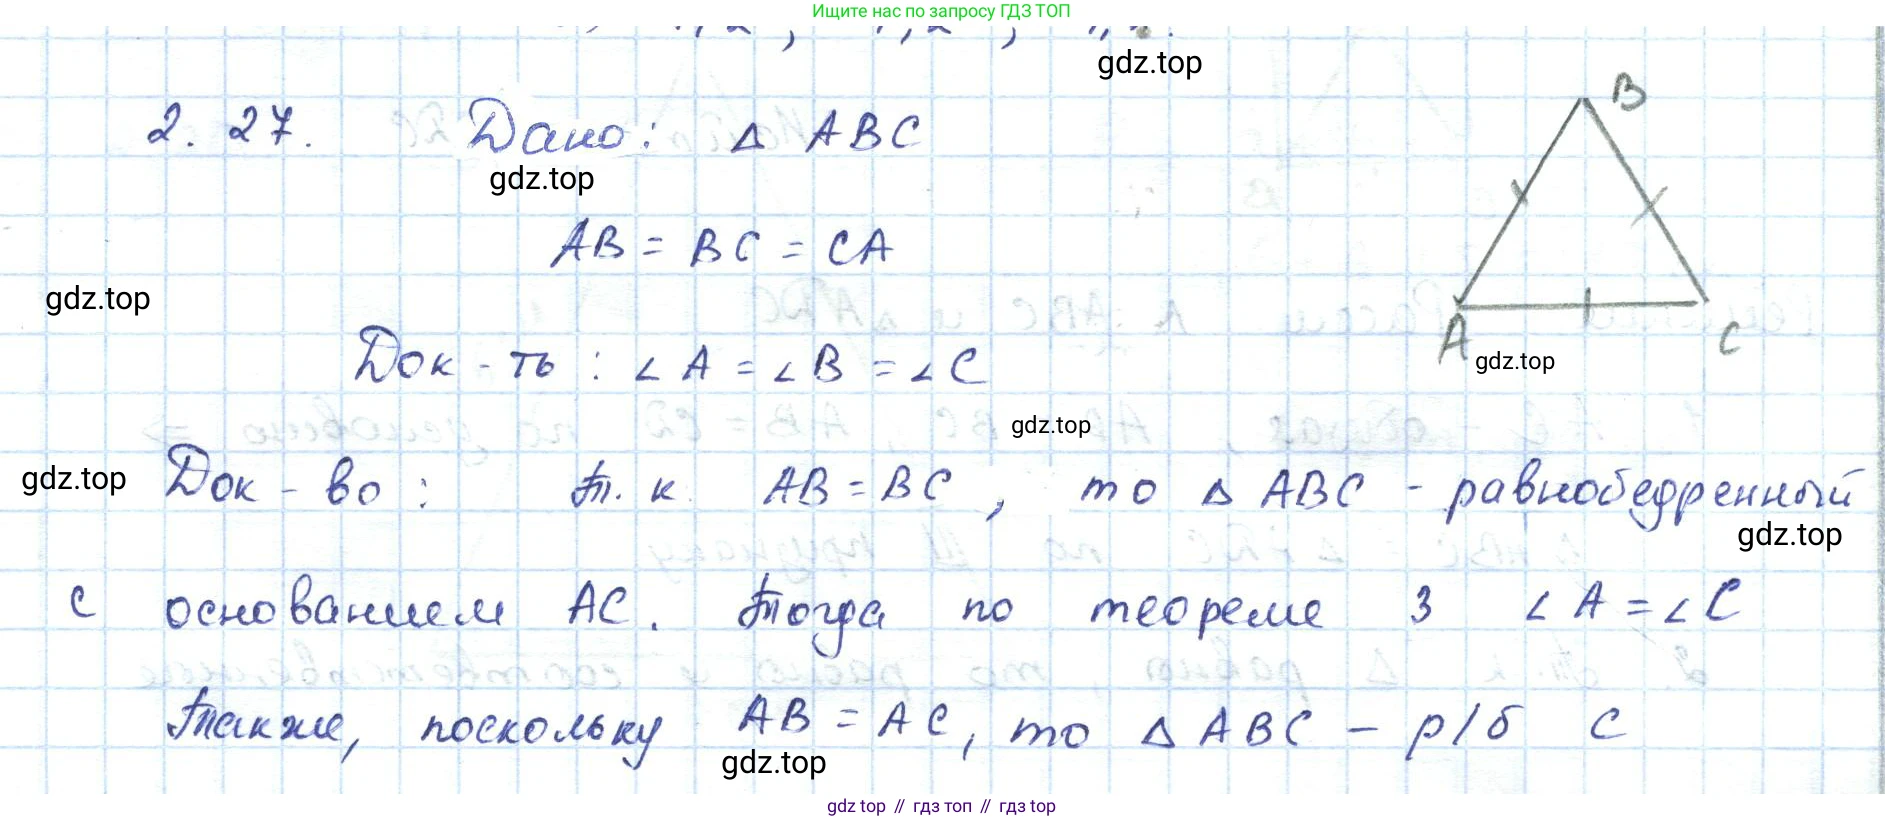 Ищите нас по запросу ГДЗ ТОП
gdz.top
2. 27. Дано: △ ABC
B
gdz.top
AB = BC = CA
gdz.top
Док-ть: ∠A = ∠B = ∠C
A
C
gdz.top
gdz.top
gdz.top
Док-во: т.к. AB = BC, то △ ABC - равнобедренный
gdz.top
с основанием AC. Тогда по теореме 3 ∠A = ∠C
Также, поскольку AB = AC, то △ ABC - р/б с
gdz.top
gdz top // гдз топ // гдз top